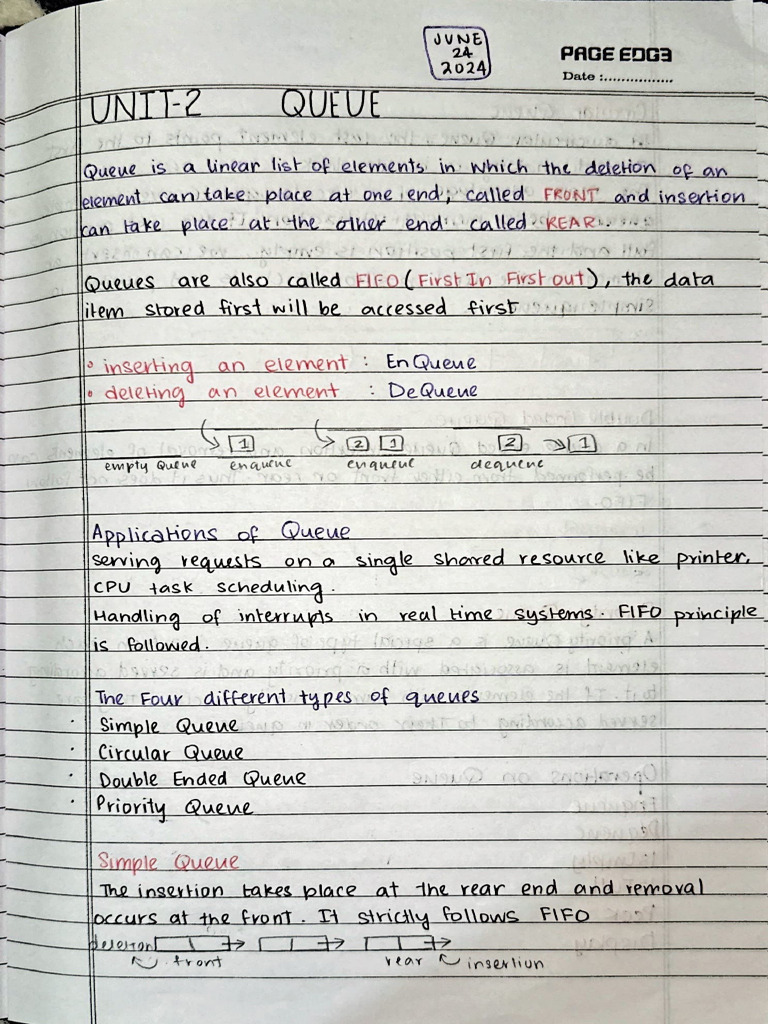 JUNE
24
2024
PAGE EDG3
Date :................
UNIT-2 QUEUE
Queue is a linear list of elements in which the deletion of an
element can take place at one end, called FRONT and insertion
can take place at the other end called REAR.
Queues are also called FIFO (First In First out), the data
item stored first will be accessed first
• inserting an element : EnQueue
• deleting an element : DeQueue
1 2 1 2 1
empty Queue enqueue enqueue dequeue
Applications of Queue
serving requests on a single shared resource like printer.
CPU task scheduling.
Handling of interrupts in real time systems. FIFO principle
is followed.
The Four different types of queues
· Simple Queue
· Circular Queue
· Double Ended Queue
· Priority Queue
Simple Queue
The insertion takes place at the rear end and removal
occurs at the front. It strictly follows FIFO
deletion
front rear insertion